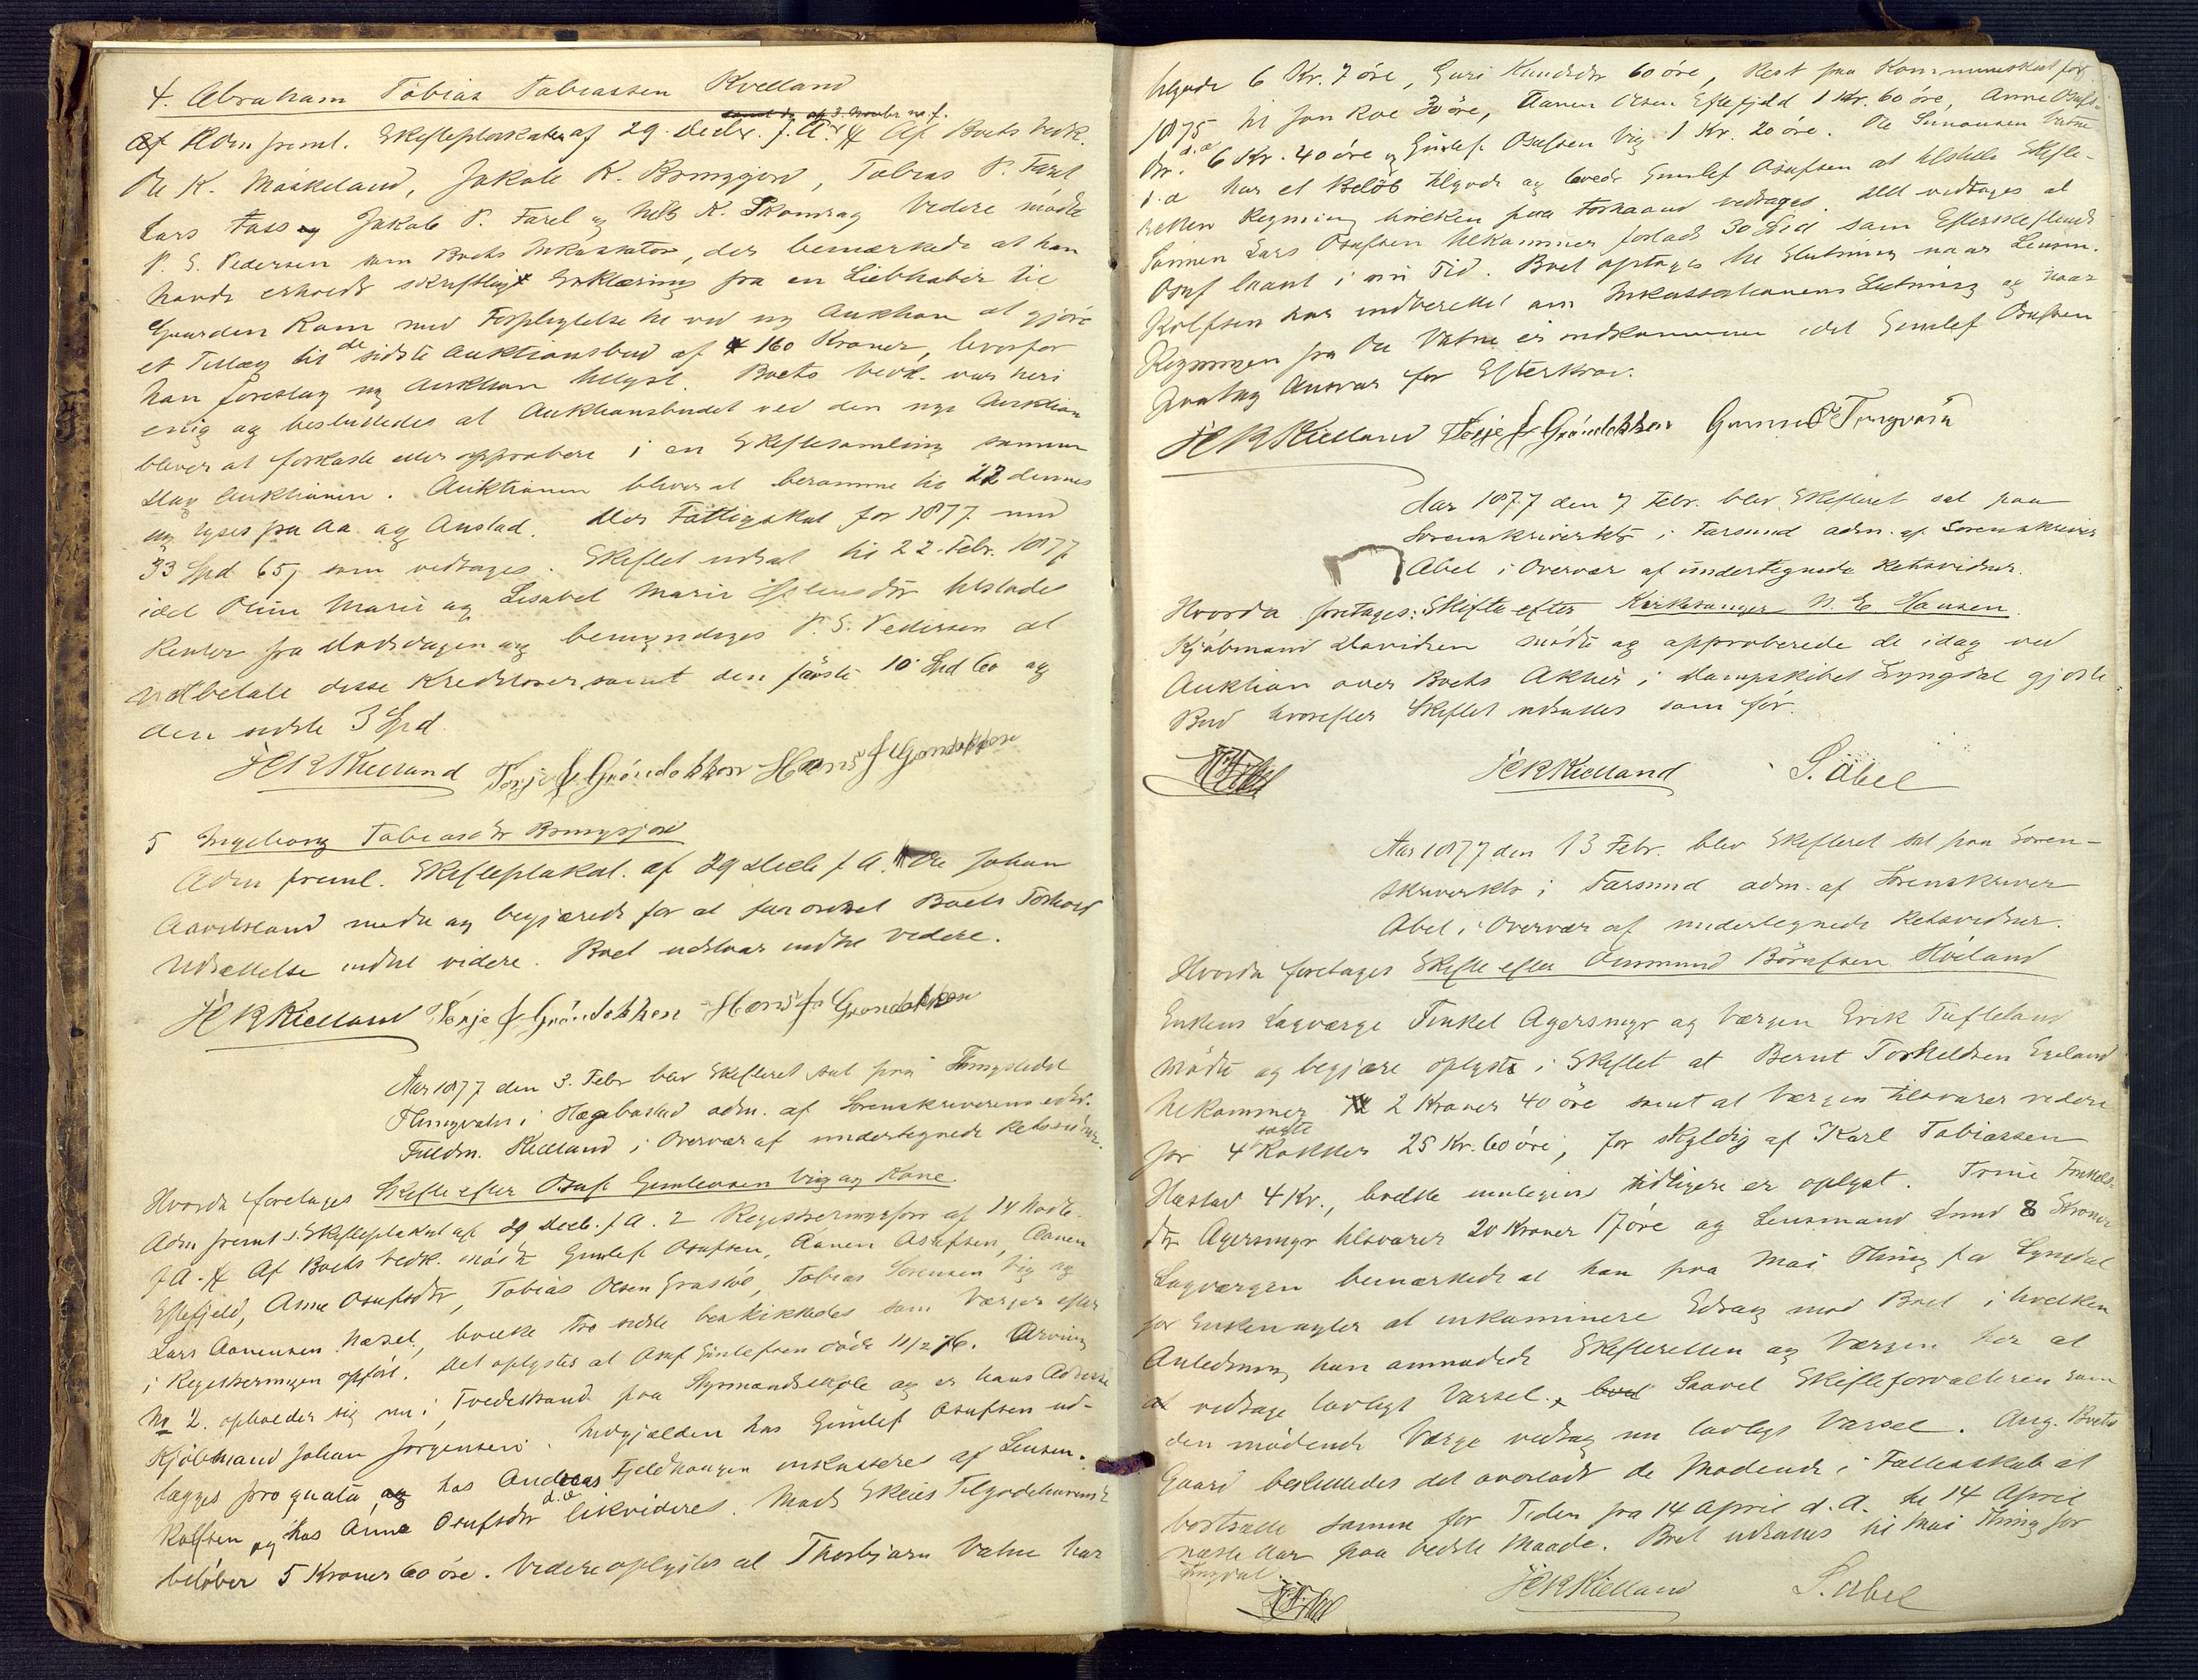 4. Abraham Tobias Tobiassen Kvelland
Af Adm freml. Skifteplakater af 29. Decbr. f. A. Af Boets Vedk.
Ole K. Møskeland, Jakob K. Bringsjord, Tobias P. Faret
Lars Faas og Jakob P. Faret og Nils K. Skomrag Videre mødte
P. S. Pedersen som Boets Inkassator, der bemærkede at han
havde erholdt skriftligt Erklæring fra en Liebhaber til
Gaarden Kam med Forpligtelse til ved ny Auktion at gjøre
et Tillæg til de sidste Auktionsbud af 160 Kroner, hvorfor
han foreslog ny Auktion helyst. Boets Vedk. var heri
enig og besluttedes at Auktionsbudet ved den nye Auktion
bliver at forkaste eller approbere i en Skiftesamling samme
Dag Auktionen. Auktionen bliver at beramme til 22 dennes
og lyses paa Aa og Austad. Der Fattigskat for 1877 med
33 Spd 65, som vedtages. Skiftet udsat til 22. Febr. 1877
idet Oline Marie og Lisabet Marie tilstodes
Renter fra Dødsdagen og bemyndiges P. S. Pedersen at
udbetale disse Kreditorer samt den første 10 Spd 60 og
den sidste 3 Spd.
JCRKielland Terje J Grøndokken Hans J Grondokken
5 Ingeborg Tobiasdtr Bringsjord
Adm freml. Skifteplakat. af 29 Decb f. A. Ole Johan
Aavitsland mødte og begjærede for at faa ordnet Boets Forhold
Udsættelse indtil videre. Boet udstaar indtil videre.
JCRKielland Terje J Grøndokken Hans J Grondokken
Aar 1877 den 3. Febr blev Skifteret sat paa Thingstedet
Thingvatn i Hægebostad adm. af Sorenskriverens edsv.
Fuldm. Kielland i Overvær af undertegnede Retsvidner.
Hvorda foretages Skifte efter Osuf Gunlevsen Vig og Kone
Adm freml 1. Skifteplakat af 29 Decb. f A. 2 Registreringsforr af 14 Novb.
f A. Af Boets Vedk. mødte Gunlef Osufsen, Aanen Osufsen, Aanen
Eftefjeld, Anne Osufsdtr, Tobias Olsen Grastøl, Tobias Sørensen Vig og
Lars Aanensen Næset, hvilke tre sidste beskikkedes som Værger efter
i Registreringen opført. Det oplystes at Osuf Gunlefsen døde 11/2 76. Arving
No 2. opholder sig nu i Tvedestrand paa Styrmandsskole og er hans Adresse
Kjøbmand Johan Jørgensen. Indgjælden hos Gunlef Osufsen ud-
lægges pro quota og hos Andreas Fjeldhaugen inkasseres af Lensm.
Rolfsen og hos Anne Osufsdtr d. a. likvideres. Mads Skeies Tilgodehavende
beløber 5 Kroner 60 øre. Videre oplystes at Thorbjørn Vatne har
tilgode 6 Kr. 7 øre, Guri Knudsdtr 60 øre, Rest paa Kommuneskat for
1875 til Jon Roe 30 øre, Aanen Olsen Eftefjeld 1 Kr. 60 øre, Anne Osufs-
dtr. d. a. 6 Kr. 40 øre og Gunlef Osufsen Vig 1 Kr. 20 øre. Ole Simonsen Vatne
d. a har et Beløb tilgode og lovede Gunlef Osufsen at tilstille Skifte-
retten Regning hvilken paa Forhaand vedtages. Det vedtages at
Sønnen Lars Osufsen tilkommer forlods 30 Spd som Efterskiftende
Osuf laant i sin Tid. Boet optages til Slutning naar Lensm.
Rolfsen har indberettet om Inkassationens Slutning og naar
Regningen fra Ole Vatne er indkommen idet Gunlef Osufsen
paatog Ansvar for Efterkrav.
JCRKielland Terje J Grøndokken Gunnuf O Tingvatn
Aar 1877 den 7 Febr. blev Skifteret sat paa
Sorenskriverkt i Farsund adm. af Sorenskriver
Abel i Overvær af undertegnede Retsvidner.
Hvorda foretages: Skifte efter Kirkesanger N. E. Hansen.
Kjøbmand Davidsen mødte og approberede de idag ved
Auktion over Boets Aktier i Dampskibet Lyngdal gjorte
Bud hvorefter Skiftet udsattes som før.
JCRKielland S. Abel
Aar 1877 den 13 Febr. blev Skifteret sat paa Soren-
skriverkt i Farsund adm. af Sorenskriver
Abel i Overvær af undertegnede Retsvidner.
Hvorda foretages Skifte efter Aasmund Børufsen Høiland
Enkens Lagværge Tinkel Agersmyr og Værgen Erik Tufteland
mødte og begjære oplyste i Skiftet at Bernt Torkeldsen Egeland
tilkommer 2 Kroner 40 øre samt at Værgen tilsvarer videre
for 4 solgte Kokker 25 Kr. 60 øre, for skyldig af Karl Tobiassen
Hæstad 4 Kr., hvilke umulegens tidligere er oplyst. Trine Tinkels-
dtr Agersmyr tilsvarer 20 Kroner 17 øre og Lensmand Lund 8 Kroner
Lagværgen bemærkede at han paa Mai Thing f A Lyngdal
for Enken agter at inkaminere Søgsm mod Boet i hvilken
Anledning han anmodede Skifteretten og Værgen her at
vedtage lovligt Varsel. Saavel Skifteforvalteren som
den mødende Værge vedtog nu lovligt Varsel. Ang. Boets
Gaard besluttedes det overladt de Mødende i Fællesskab at
bortsætte samme for Tiden fra 14 April d. A. til 14 April
næste Aar paa bedste Maade. Boet udsattes til Mai Thing for
Lyngdal.
JCRKielland S. Abel